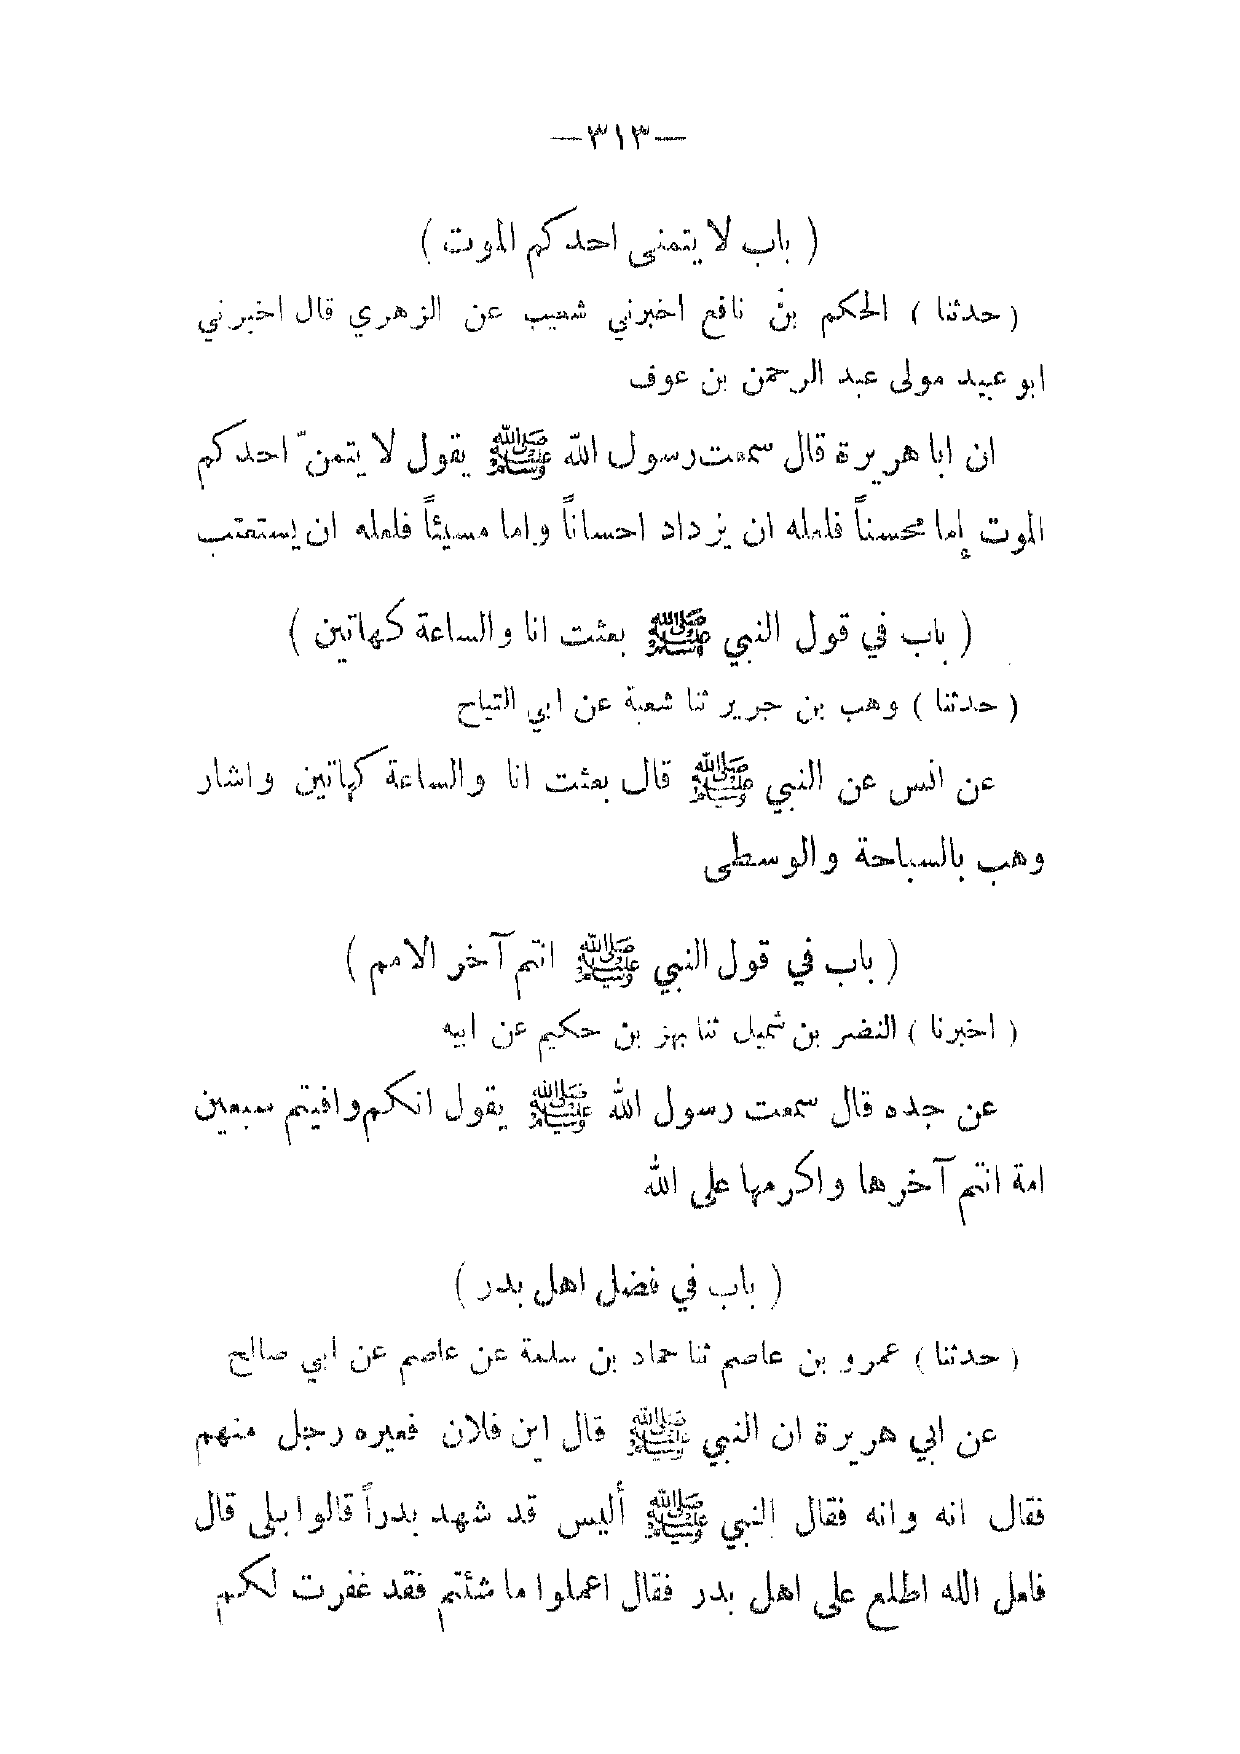 —٣١٣—
( باب لا يتمنى احدكم الموت )
( حدثنا ) الحكم بنُ نافع اخبرني شعيب عن الزهري قال اخبرني
ابو عبيد مولى عبد الرحمن بن عوف
ان ابا هريرة قال سمعت رسول الله ﷺ يقول لا يتمنّ احدكم
الموت إما محسناً فلعله ان يزداد احساناً واما مسيئاً فلعله ان يستعتب
( باب في قول النبي ﷺ بعثت انا والساعة كهاتين )
( حدثنا ) وهب بن جرير ثنا شعبة عن ابي التياح
عن انس عن النبي ﷺ قال بعثت انا والساعة كهاتين واشار
وهب بالسباحة والوسطى
( باب في قول النبي ﷺ انتم آخر الامم )
( اخبرنا ) النضر بن شميل ثنا بهز بن حكيم عن ابيه
عن جده قال سمعت رسول الله ﷺ يقول انكم وافيتم سبعين
امة انتم آخرها واكرمها على الله
( باب في فضل اهل بدر )
( حدثنا ) عمرو بن عاصم ثنا حماد بن سلمة عن عاصم عن ابي صالح
عن ابي هريرة ان النبي ﷺ قال اين فلان فعيره رجل منهم
فقال انه وانه فقال النبي ﷺ أليس قد شهد بدراً قالوا بلى قال
فلعل الله اطلع على اهل بدر فقال اعملوا ما شئتم فقد غفرت لكم